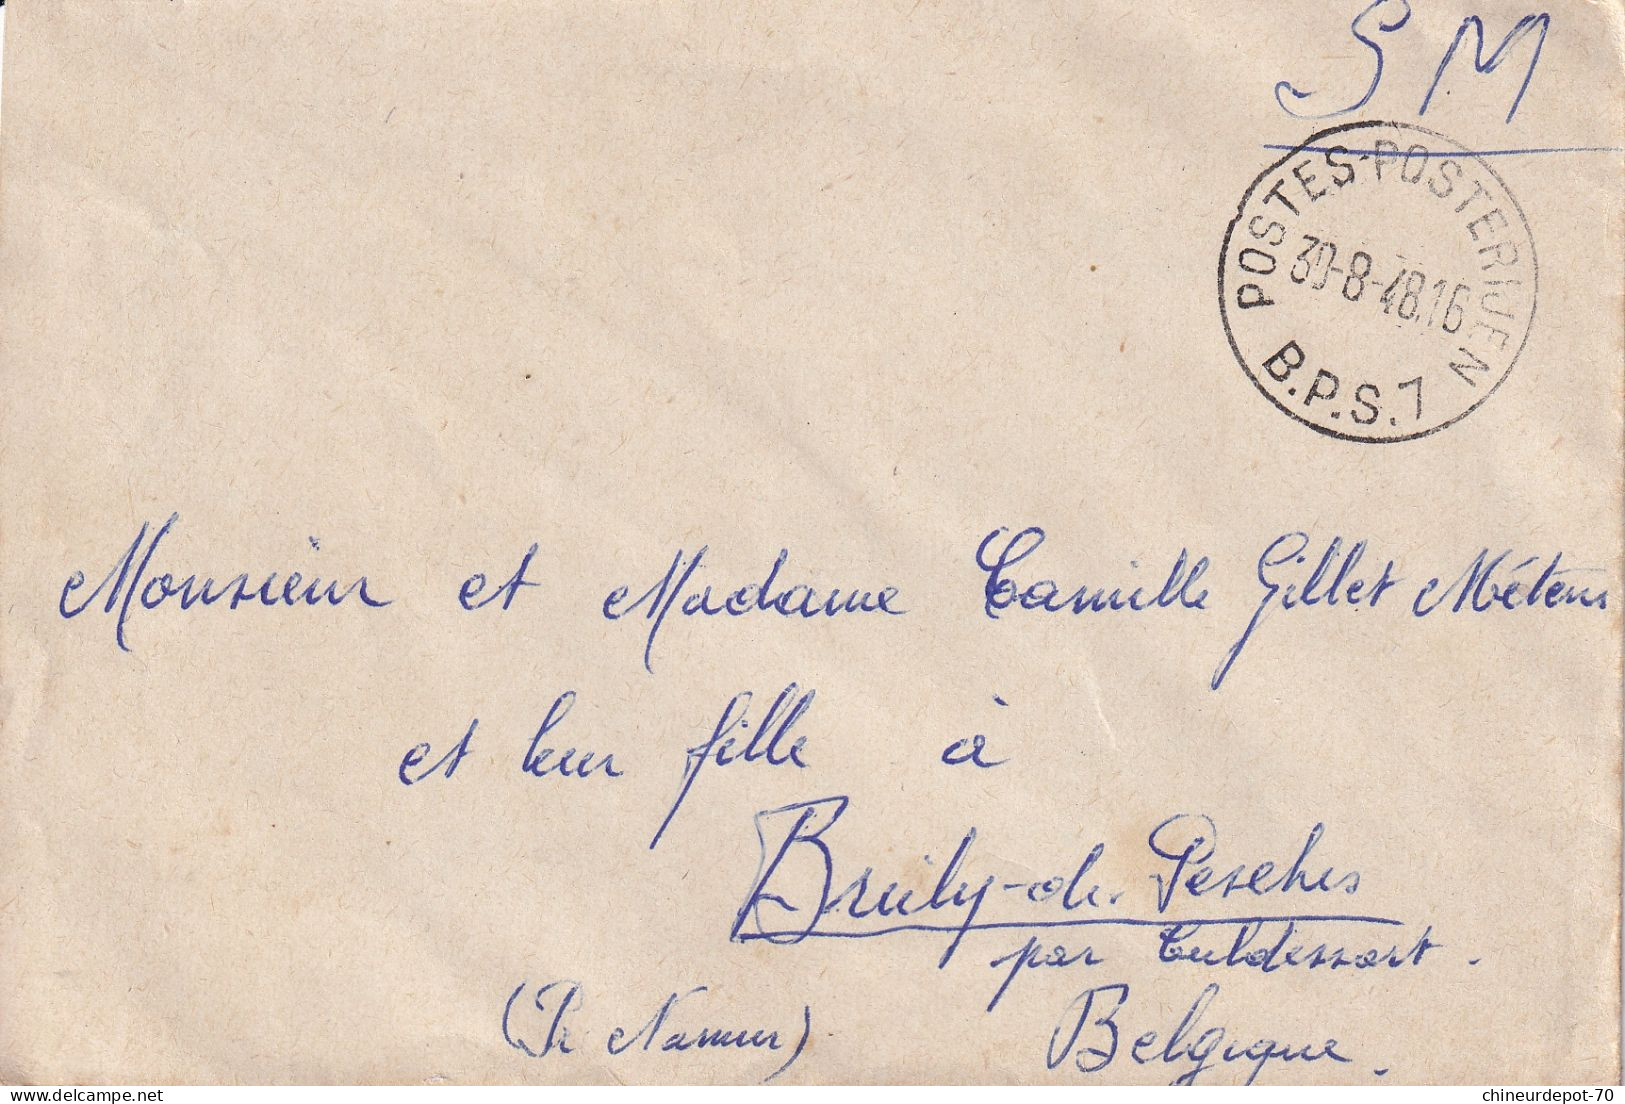 S M
POSTES-POSTERIJEN
30-8-48.16
B.P.S.7
Monsieur et Madame Camille Gillet Méteur
et leur fille à
Bruly-de-Pesches
par Culdessart.
(Pr. Namur) Belgique.
chineurdepot-70